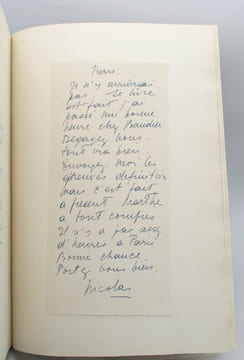 Pierre,
Je n'y arriverai
pas ! Le livre
est fait j'ai
passé une bonne
heure chez Baudier
Dégagez vous.
Tout ira bien.
Envoyez moi les
épreuves définitives
mais c'est fait
a présent Marthe
a tout compris
Il n'y a pas assez
d'heures à Paris
Bonne chance.
Portez vous bien.
Nicolas